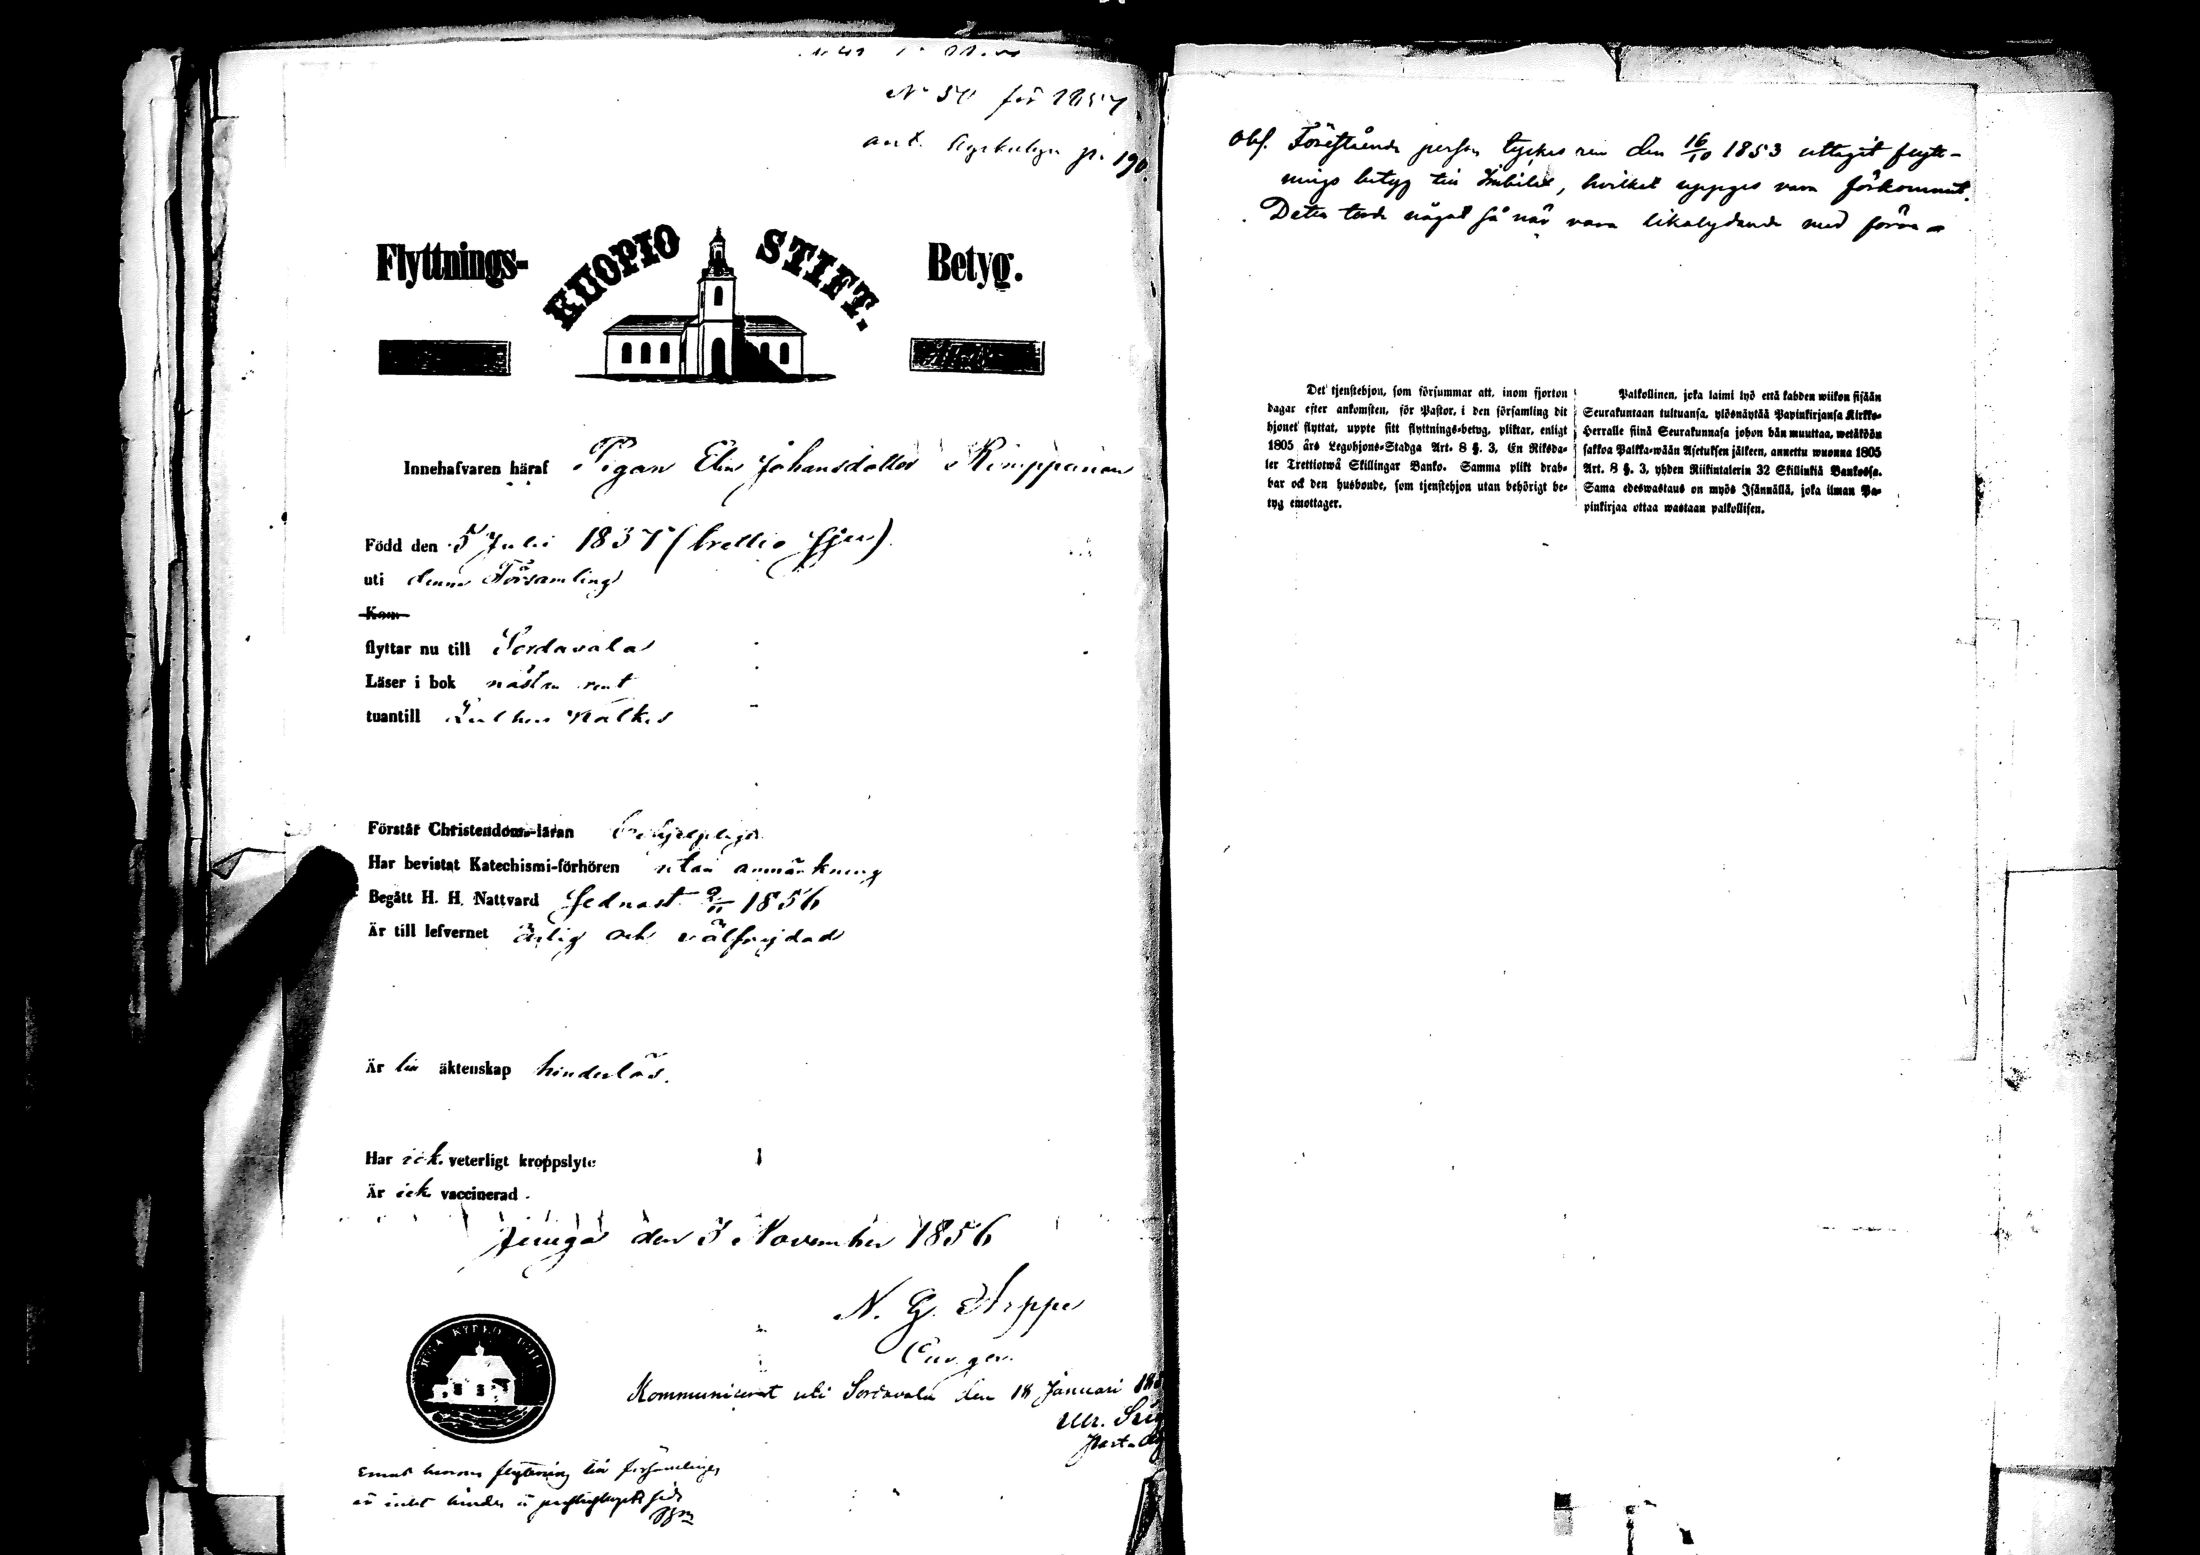 N° 50 för 1857
ant. kyrkobyn p. 190.
Flyttnings- KUOPIO STIFT. Betyg.
Innehafvaren häraf Pigan Elin Johansdotter Kimppanen
Född den 5 Juli 1837 (trettio sju)
uti denna Församling
Kom
flyttar nu till Sordavala
Läser i bok nästan rent
tuantill Luthers
Förstår Christendoms-läran
Har bevistat Katechismi-förhören utan anmärkning
Begått H. H. Nattvard sednast 2/11 1856
Är till lefvernet ärlig och välfrejdad
Är till äktenskap hinderlös.
Har ick. veterligt kroppslyte
Är ick. vaccinerad.
Jiuuga den 3 November 1856
N. G. Arppe
Kommunicerat uti Sordavala den 18 Januari
Emot hennes flyttning till församlingen
är intet hinder å
Obs. Föreståendе person tyckes ren den 16/10 1853 uttagit flytt-
nings betyg till Imbilax, hvilket uppges vara förkommet.
Detta torde något så när vara likalydande med förra
Det tjenstehjon, som försummar att, inom fjorton
dagar efter ankomsten, för Pastor, i den församling dit
hjonet flyttat, uppte sitt flyttnings-betyg, pliktar, enligt
1805 års Legohjons-Stadga Art. 8 §. 3, En Riksda-
ler Trettiotwå Skillingar Banko. Samma plikt drab-
bar ock den husbonde, som tjenstehjon utan behörigt be-
tyg emottager.
Palkollinen, joka laimi lyö että kahden wiikon sisään
Seurakuntaan tultuansa, ylösnäytää Papinkirjansa Kirkko-
Herralle siinä Seurakunnasa johon hän muuttaa, wetäköön
sakkoa Palkka-wään Asetuksen jälkeen, annettu wuonna 1805
Art. 8 §. 3, yhden Riikintalerin 32 Skillinkiä Bankossa.
Sama edeswastaus on myös Isännällä, joka ilman Pa-
pinkirjaa ottaa wastaan palkollisen.